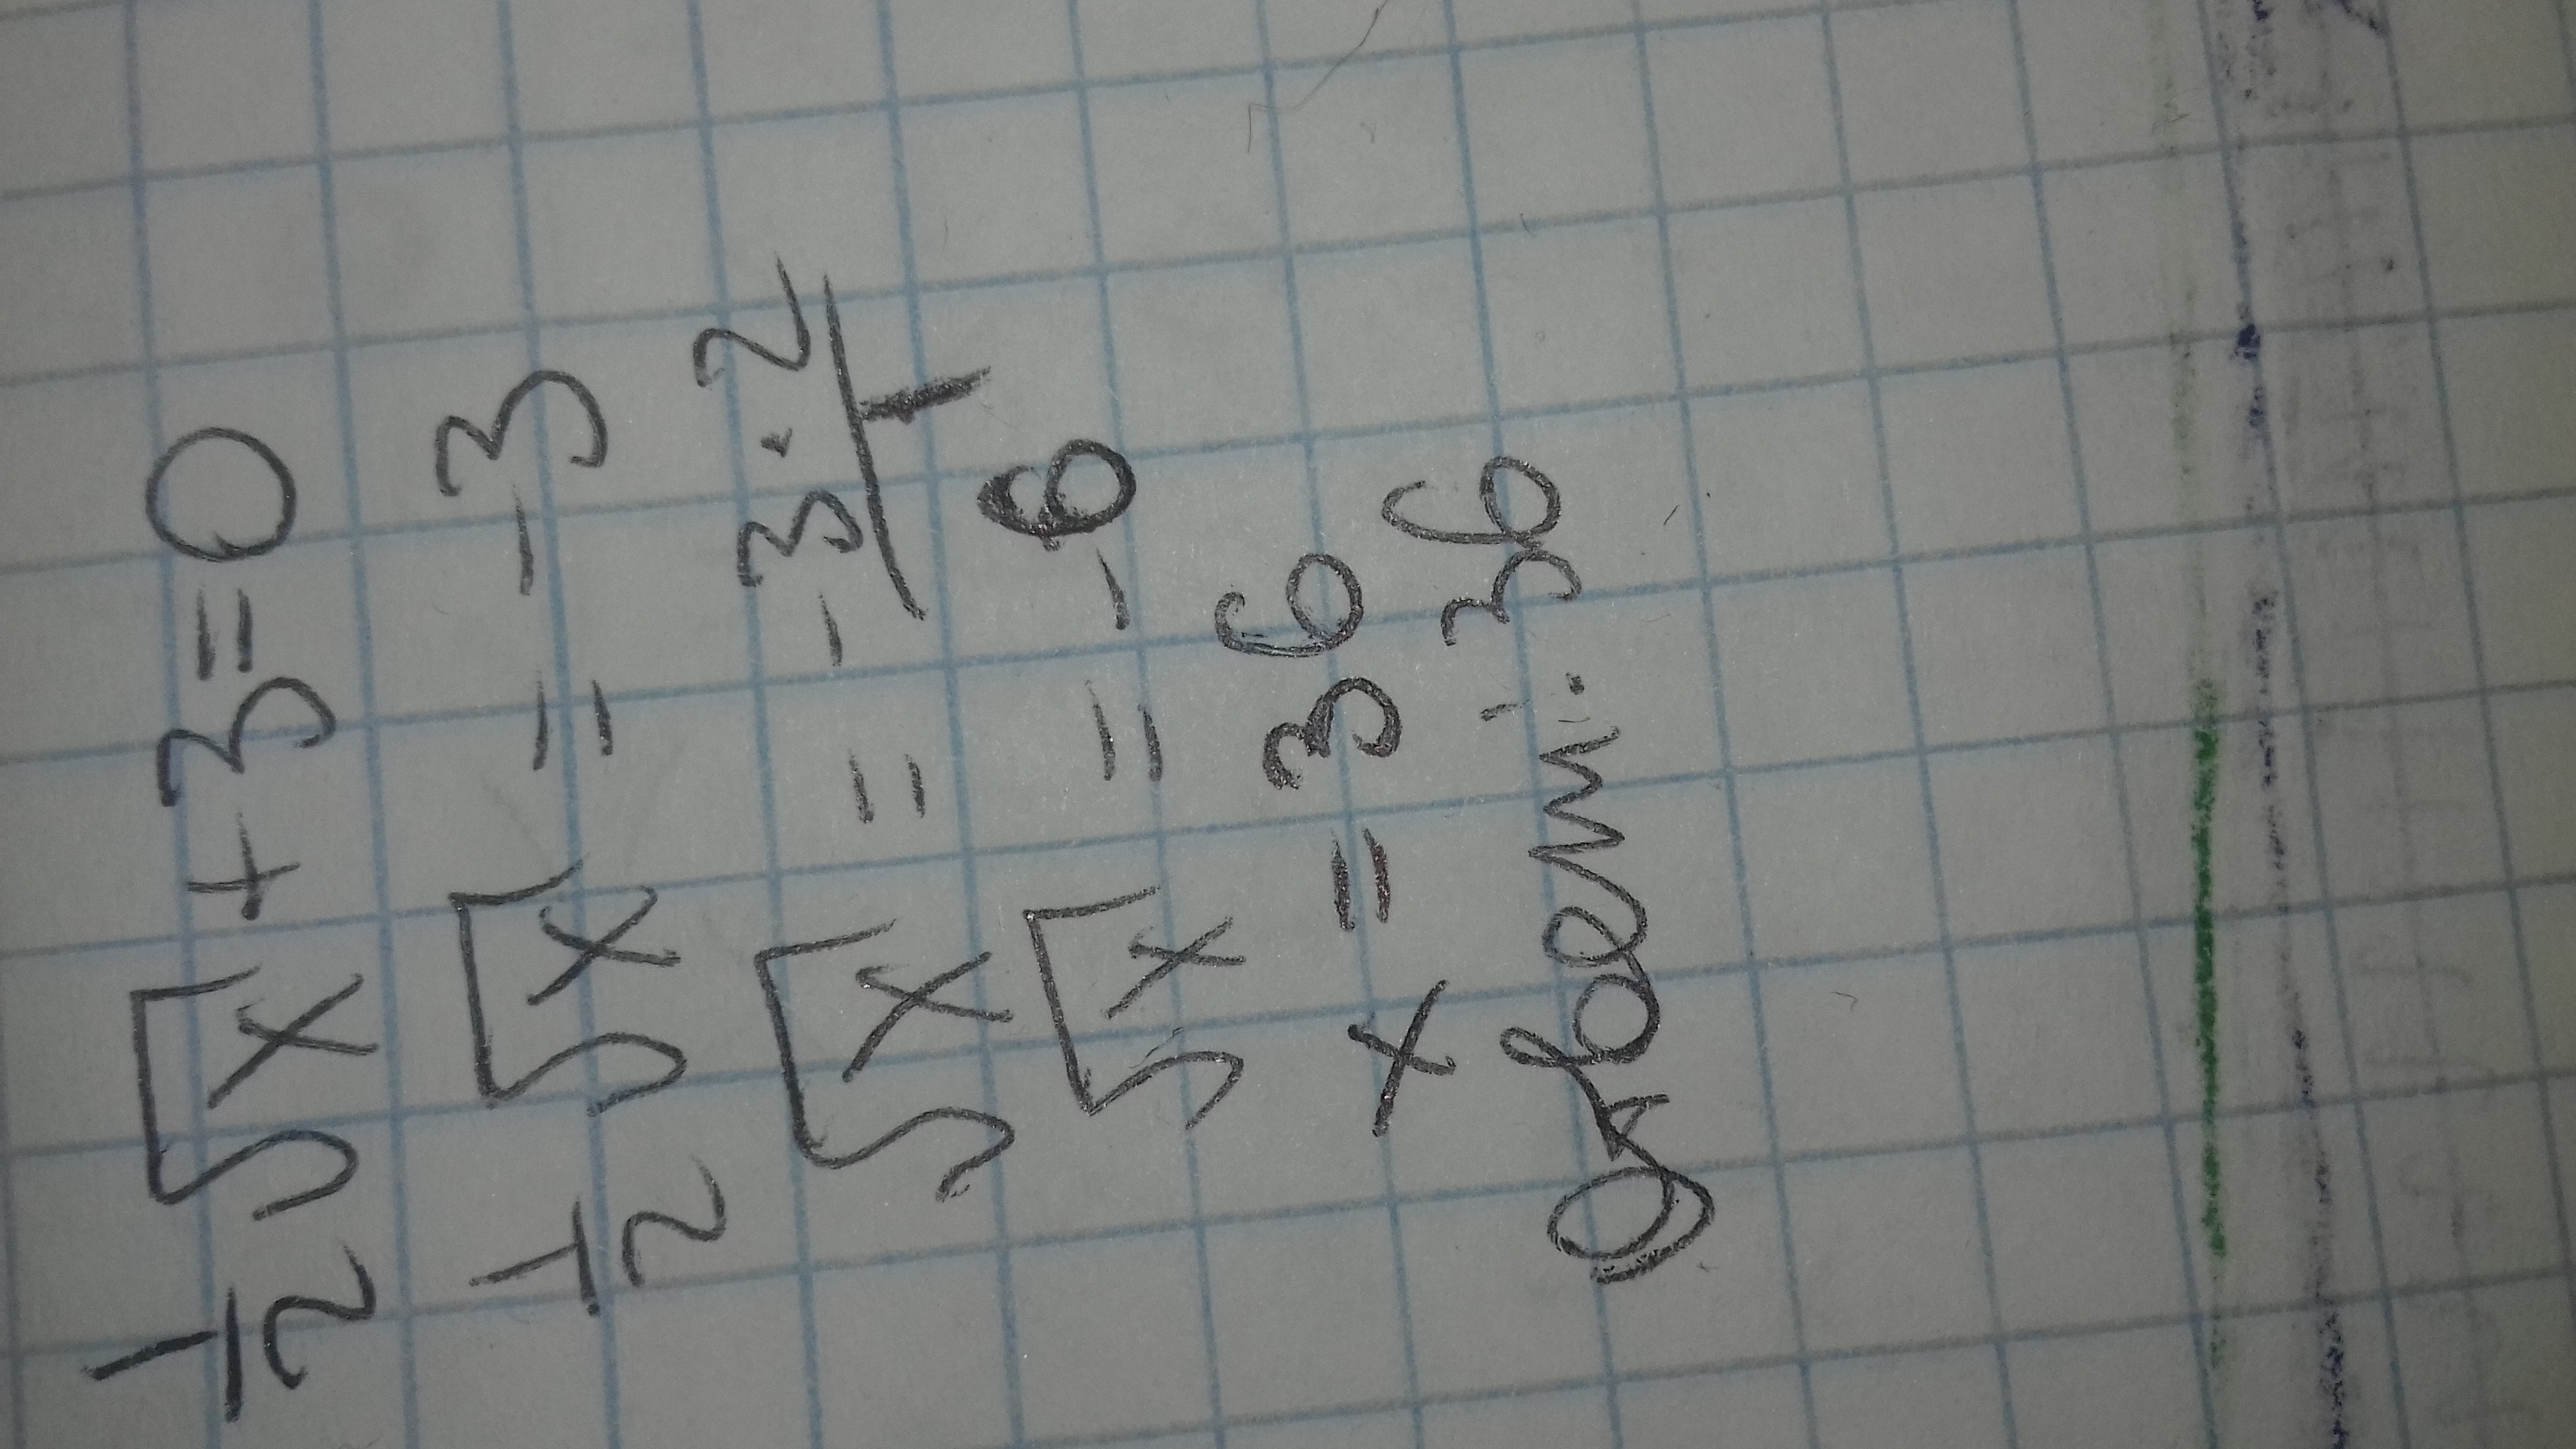 1/2 √x + 3 = 0
1/2 √x = -3
√x = -3·2/1
√x = -6
x = 36
Ответ: 36